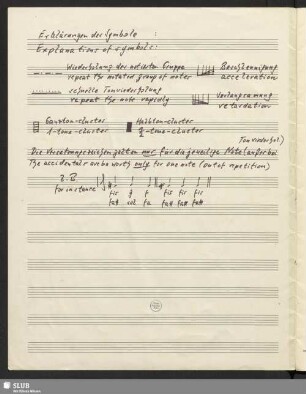 Erklärungen der Symbole :
Explanations of symbols :
Wiederholung der notierten Gruppe
repeat the notated group of notes
Beschleunigung
acceleration
schnelle Tonwiederholung
repeat the note rapidly
Verlangsamung
retardation
Ganzton-cluster
1-tone-cluster
Halbton-cluster
½-tone-cluster
Tonwiederhol.)
Die Vorsatzungszeichen gelten nur für die jeweilige Note (außer bei
The accidentals are be worth only for one note (out of repetition)
z. B.
for instance
fis g f fis fis fis
fa# sol fa fa# fa# fa#
SLUB